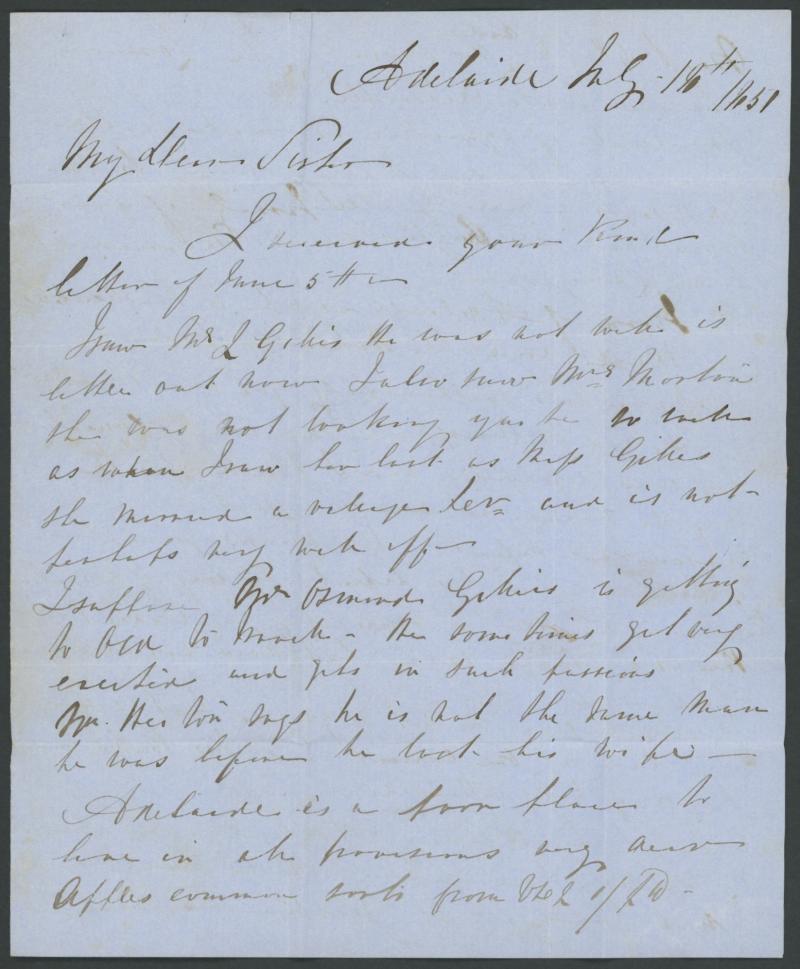 Adelaide July 18th /1851
My Dear Sister
I received your Kind
letter of June 5th
I saw Mr J Gilles He was not well is
letter out now I also saw Mrs Morton
she was not looking quite so well
as when I saw her last as Miss Gilles
she married a village and is not
perhaps very well off
I suppose Mr Osmond Gilles is getting
to Old to travel - He sometimes get very
excited and gets in such passions
Mr. says he is not the same Man
he was before he lost his wife -
Adelaide is a poor place to
live in all provisions very dear
Apples common sorts from